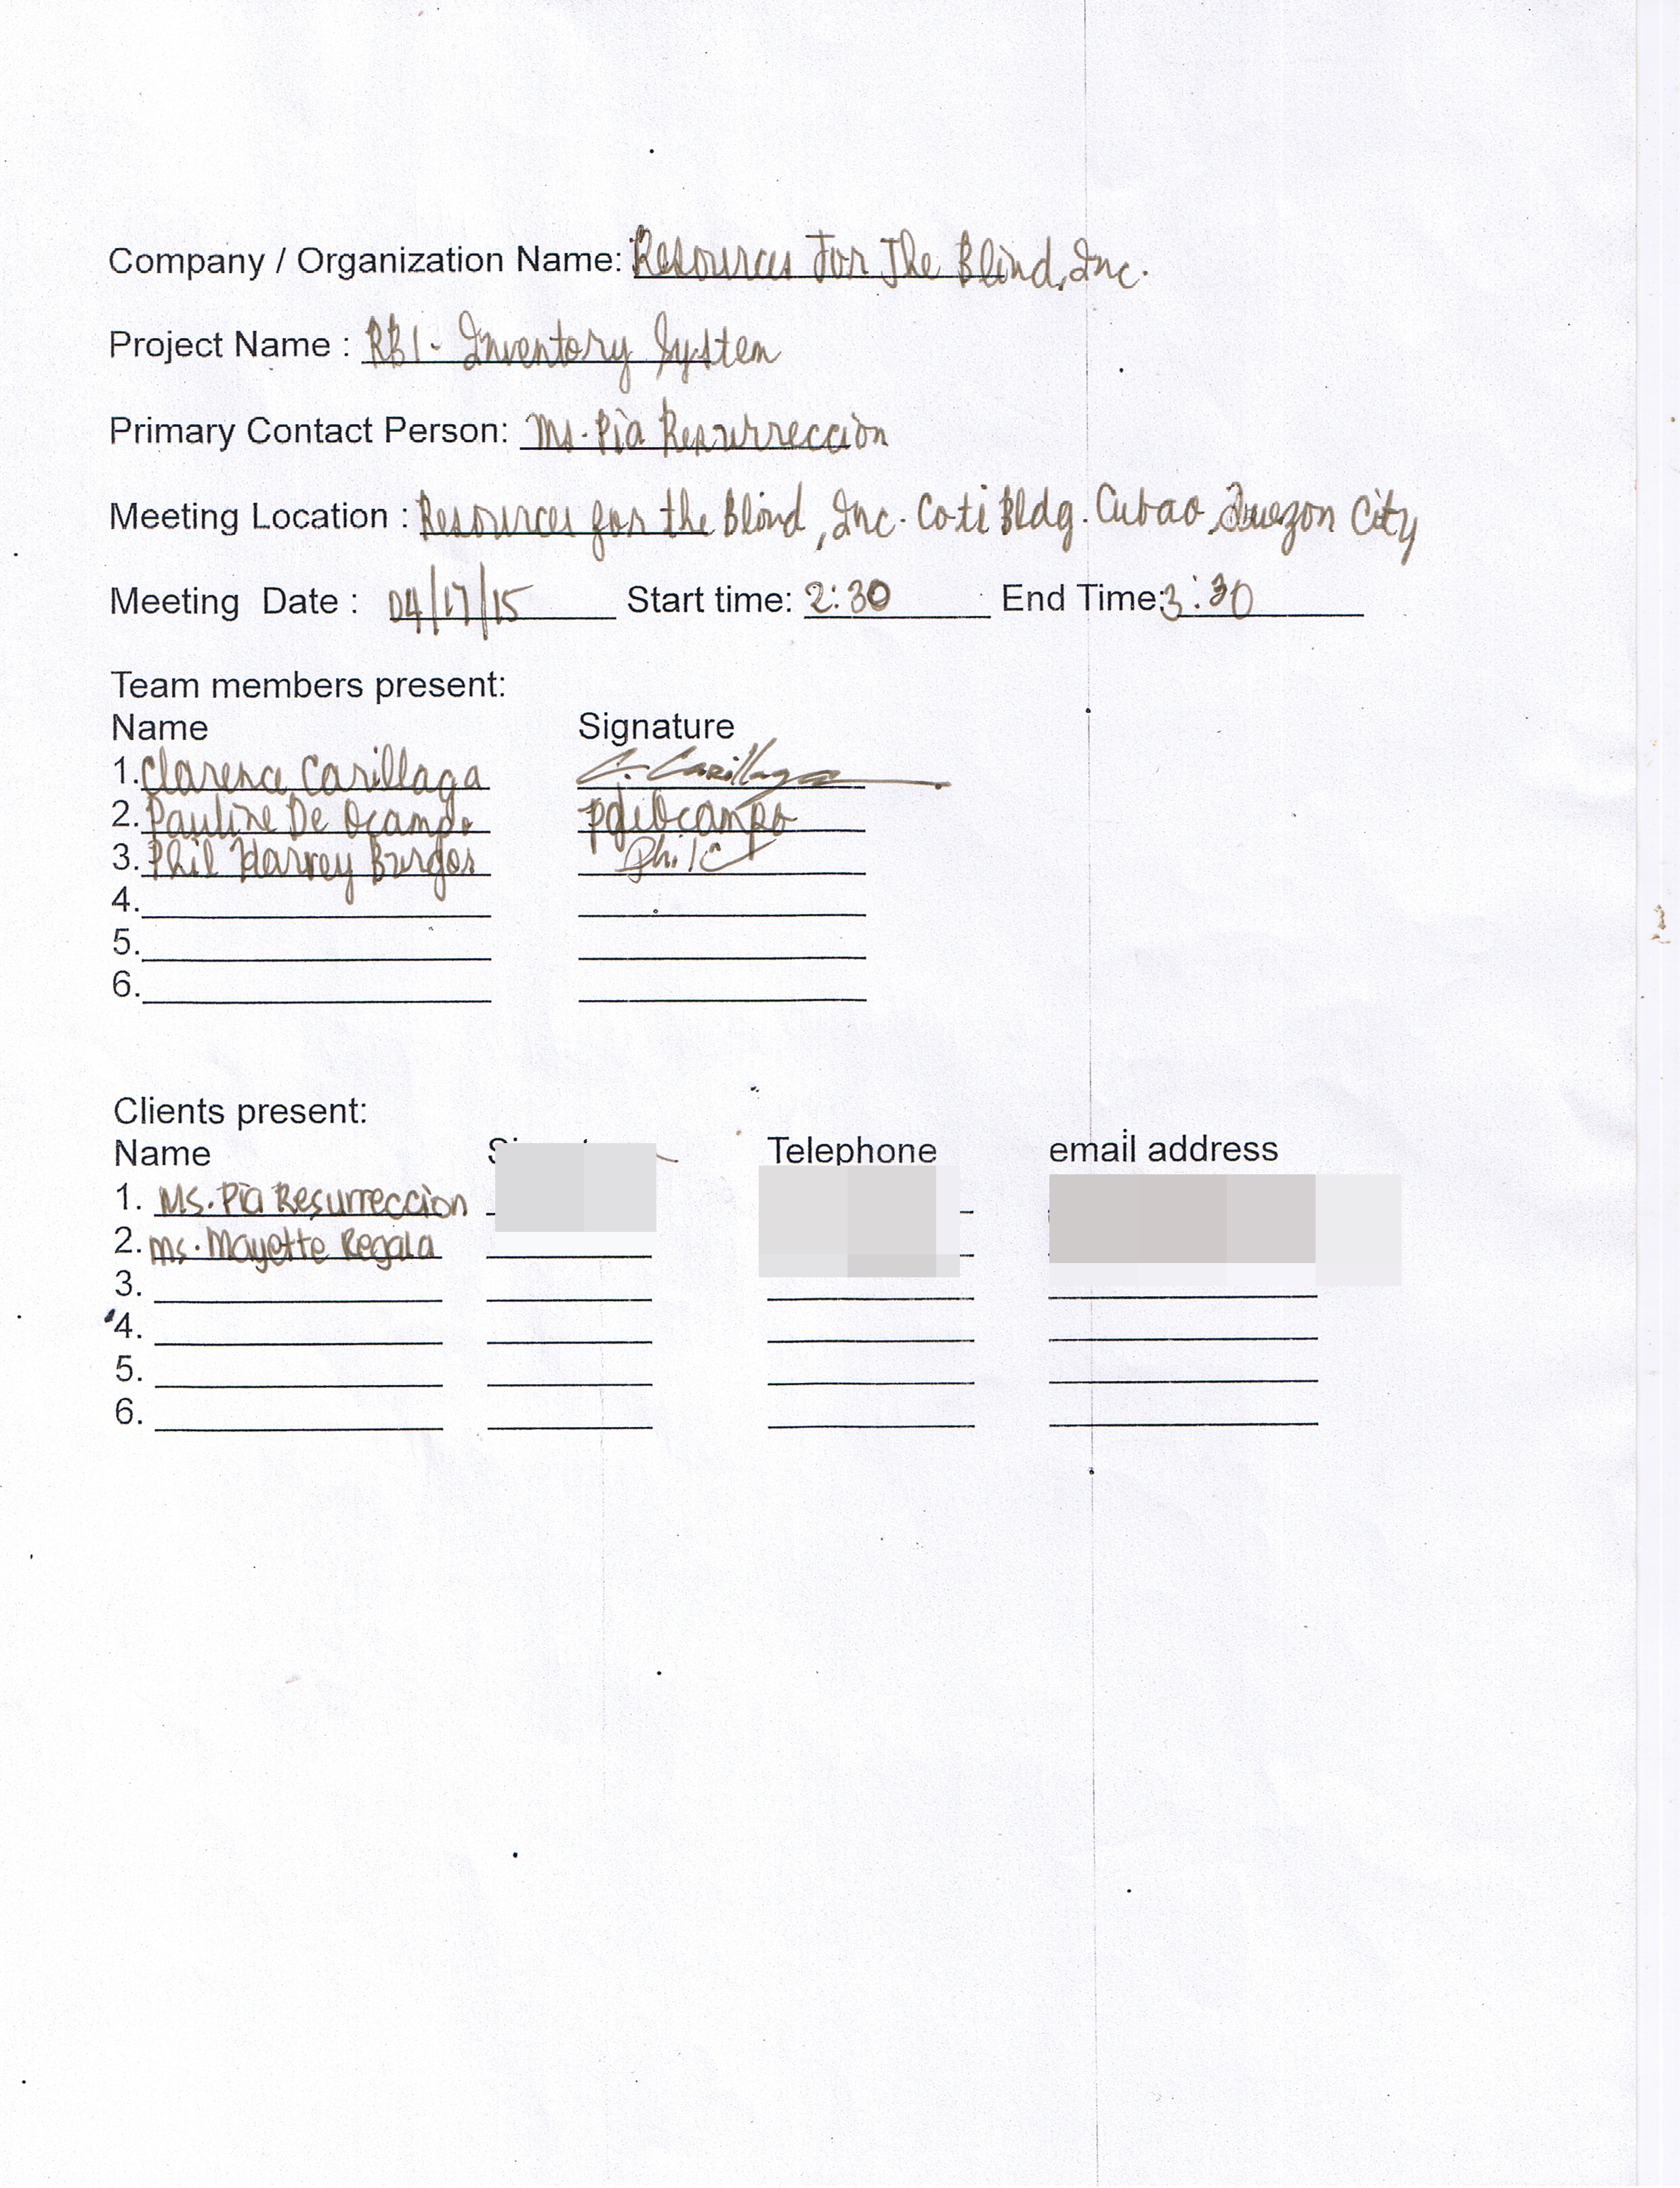 Company / Organization Name: Resources For The Blind, Inc.
Project Name : RBI - Inventory System
Primary Contact Person: Ms. Pia Resurreccion
Meeting Location : Resources for the Blind, Inc. Coti Bldg. Cubao, Quezon City
Meeting Date : 04/17/15 Start time: 2:30 End Time: 3:30
Team members present:
Name Signature
1. Clarence Carillaga C. Carillaga
2. Pauline De Ocampo pdeOcampo
3. Phil Harvey Burgos
4.
5.
6.
Clients present:
Name Telephone email address
1. Ms. Pia Resurreccion
2. Ms. Mayette Regala
3.
4.
5.
6.